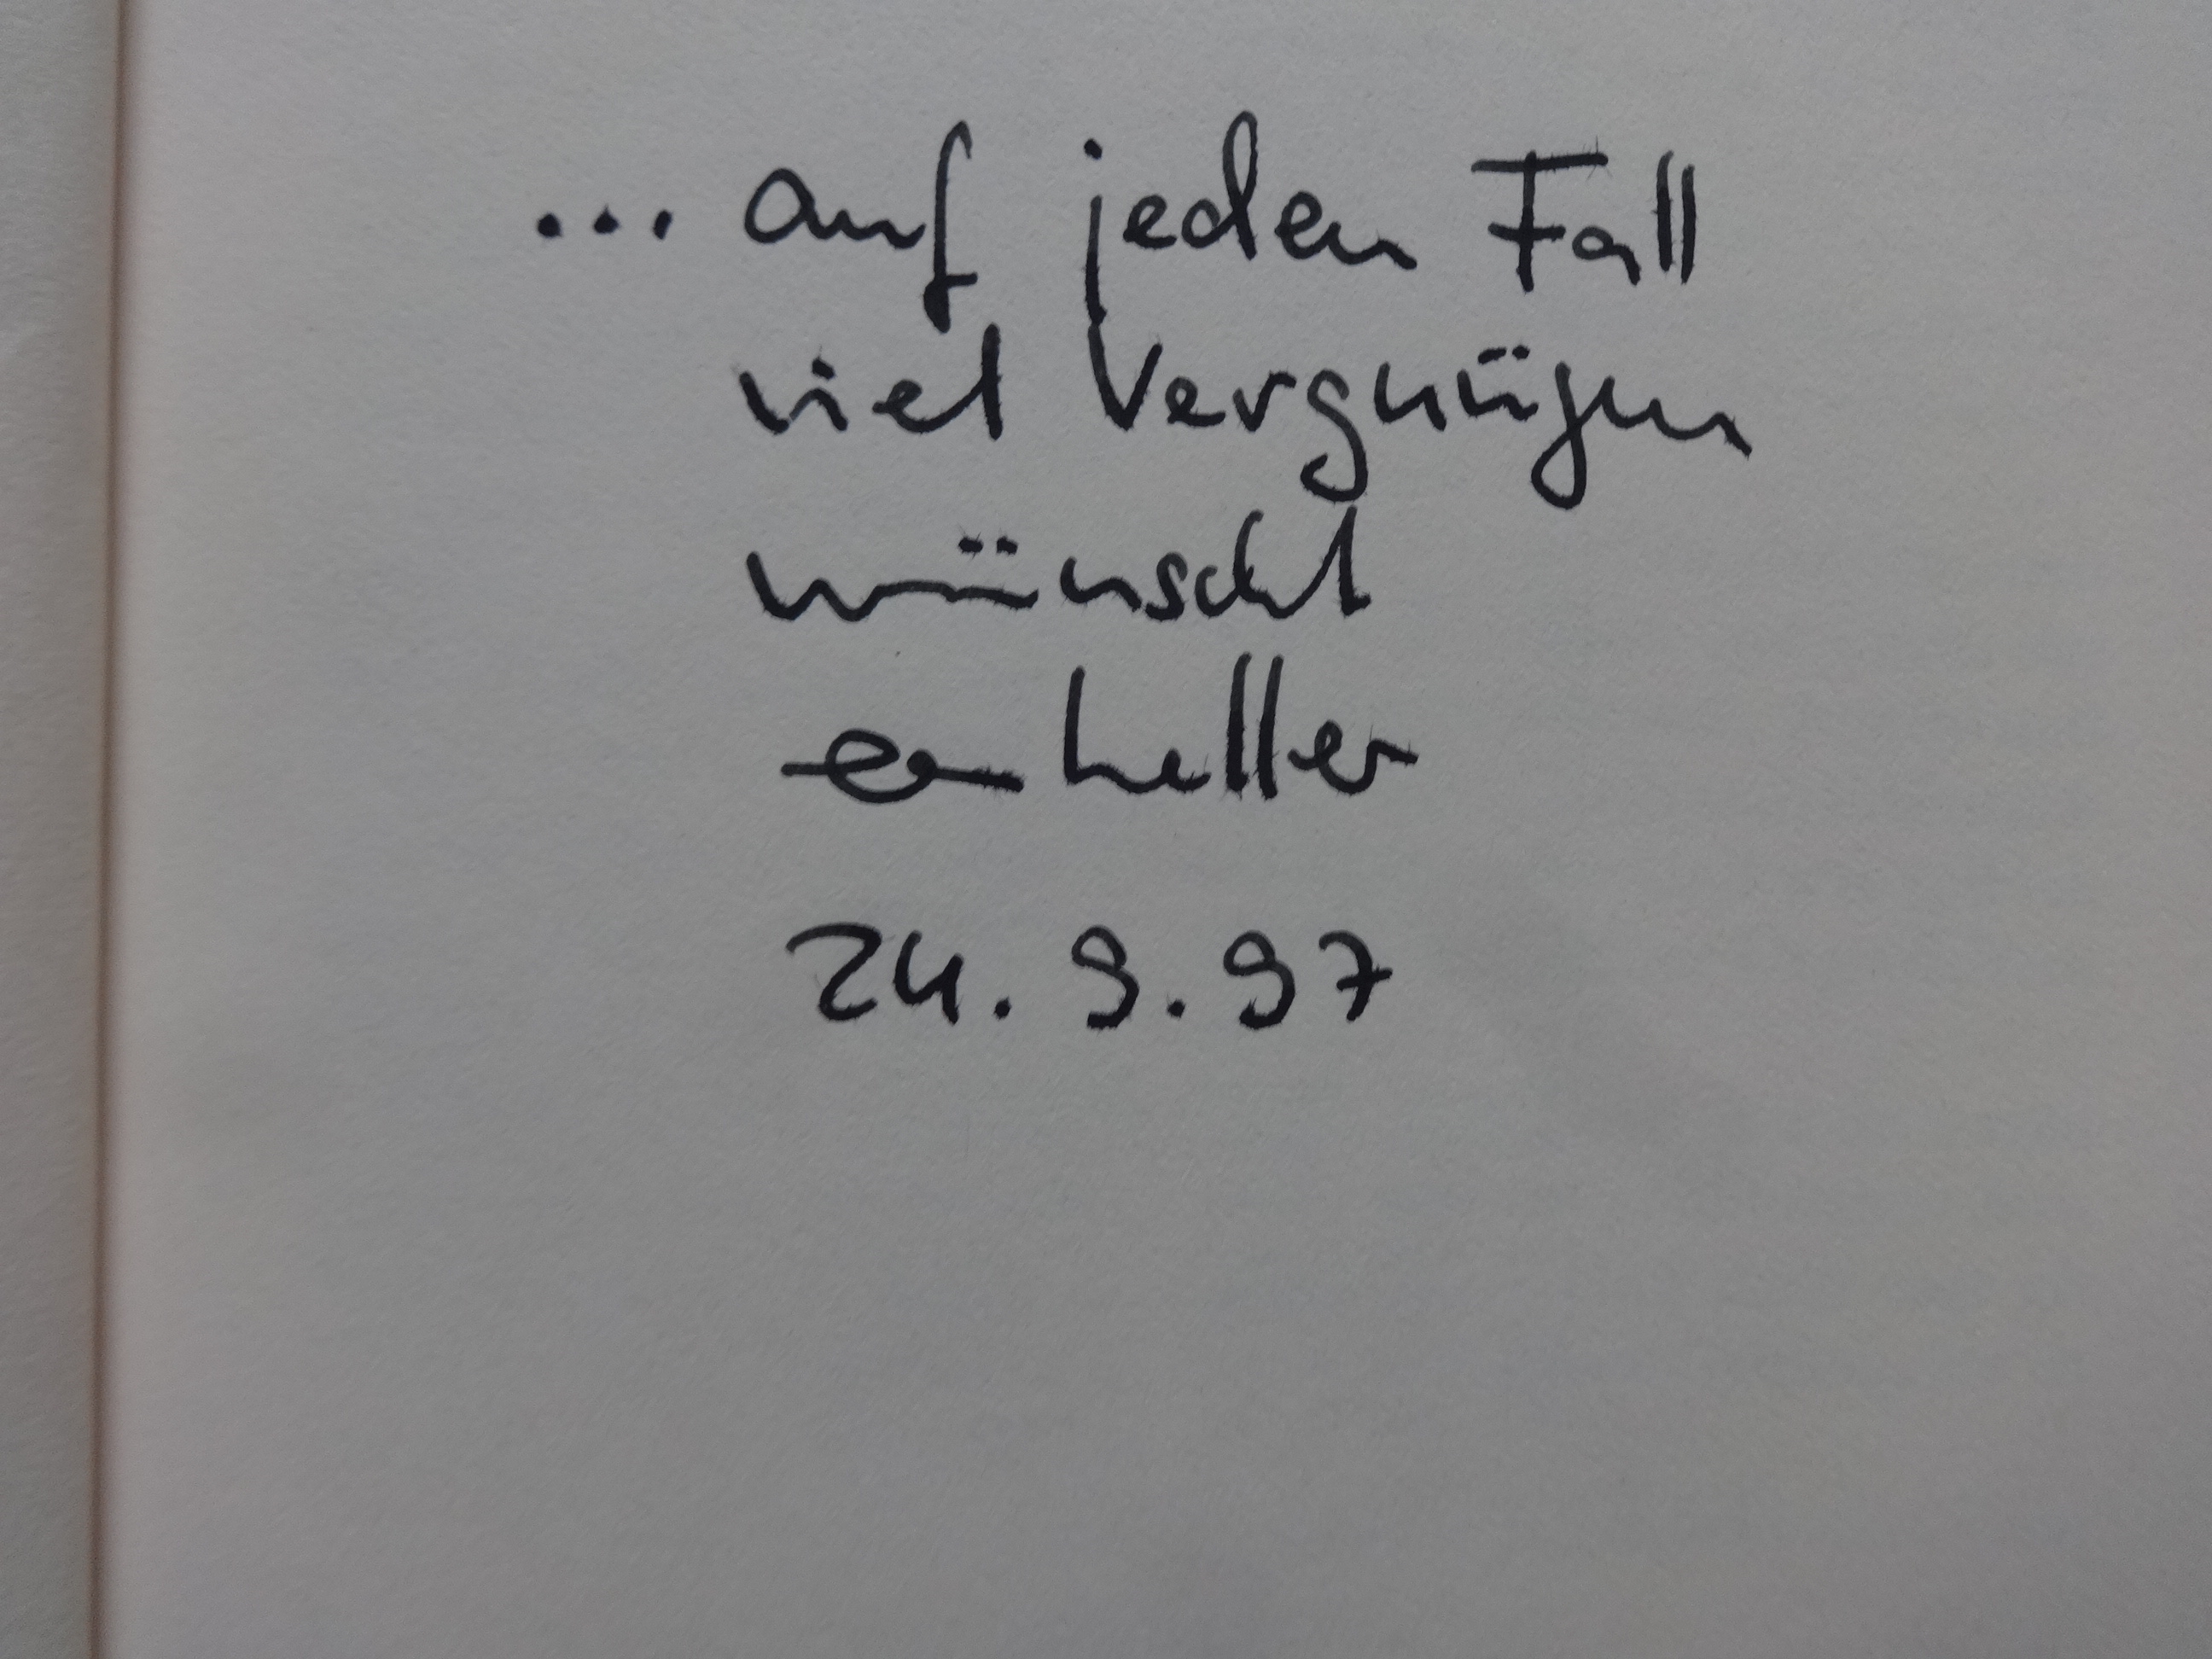 ... auf jeden Fall
viel Vergnügen
wünscht
heller
24.9.97